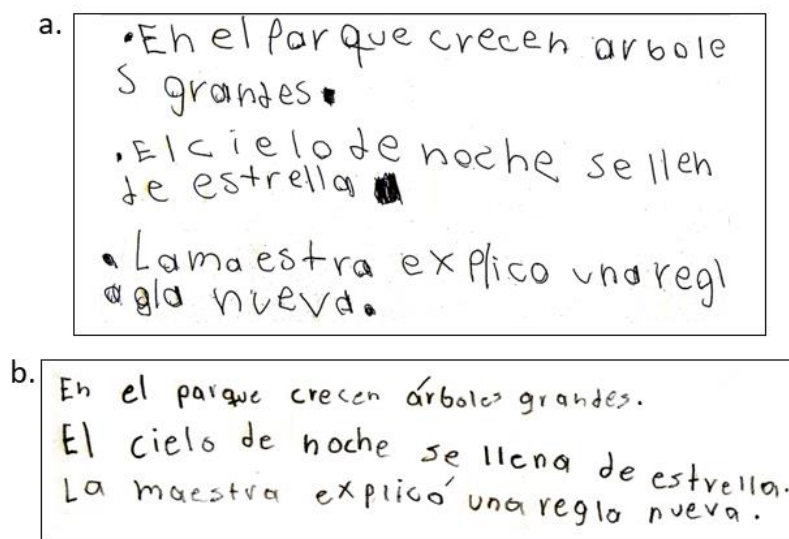 a.
•En el Par que crecen arbole
s grandes.
•El cielo de noche se llen
de estrella
•La maestra explico una regl
agla nueva.
b.
En el parque crecen árboles grandes.
El cielo de noche se llena de estrella.
La maestra explicó una regla nueva.